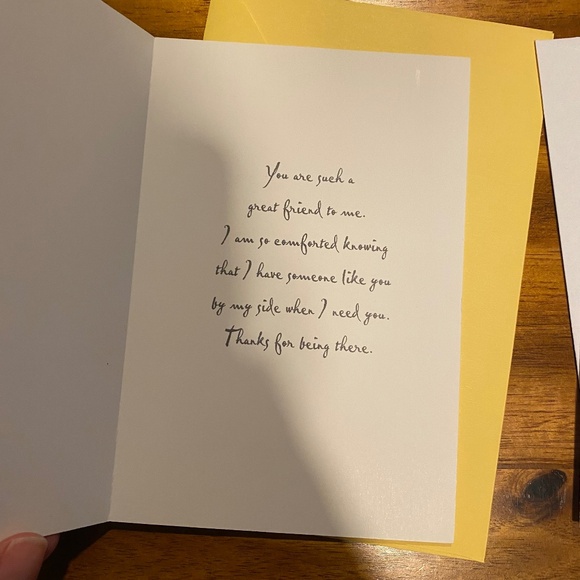 You are such a
great friend to me.
I am so comforted knowing
that I have someone like you
by my side when I need you.
Thanks for being there.